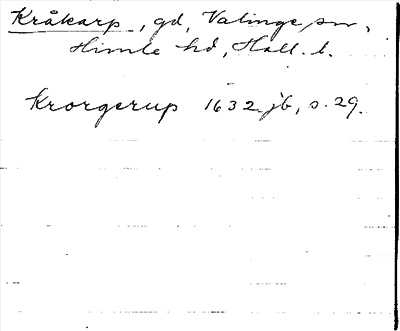 Kråkarp, gd, Valinge sn,
Himle hd, Hall. l.
Krorgerup 1632 jb, s. 29.